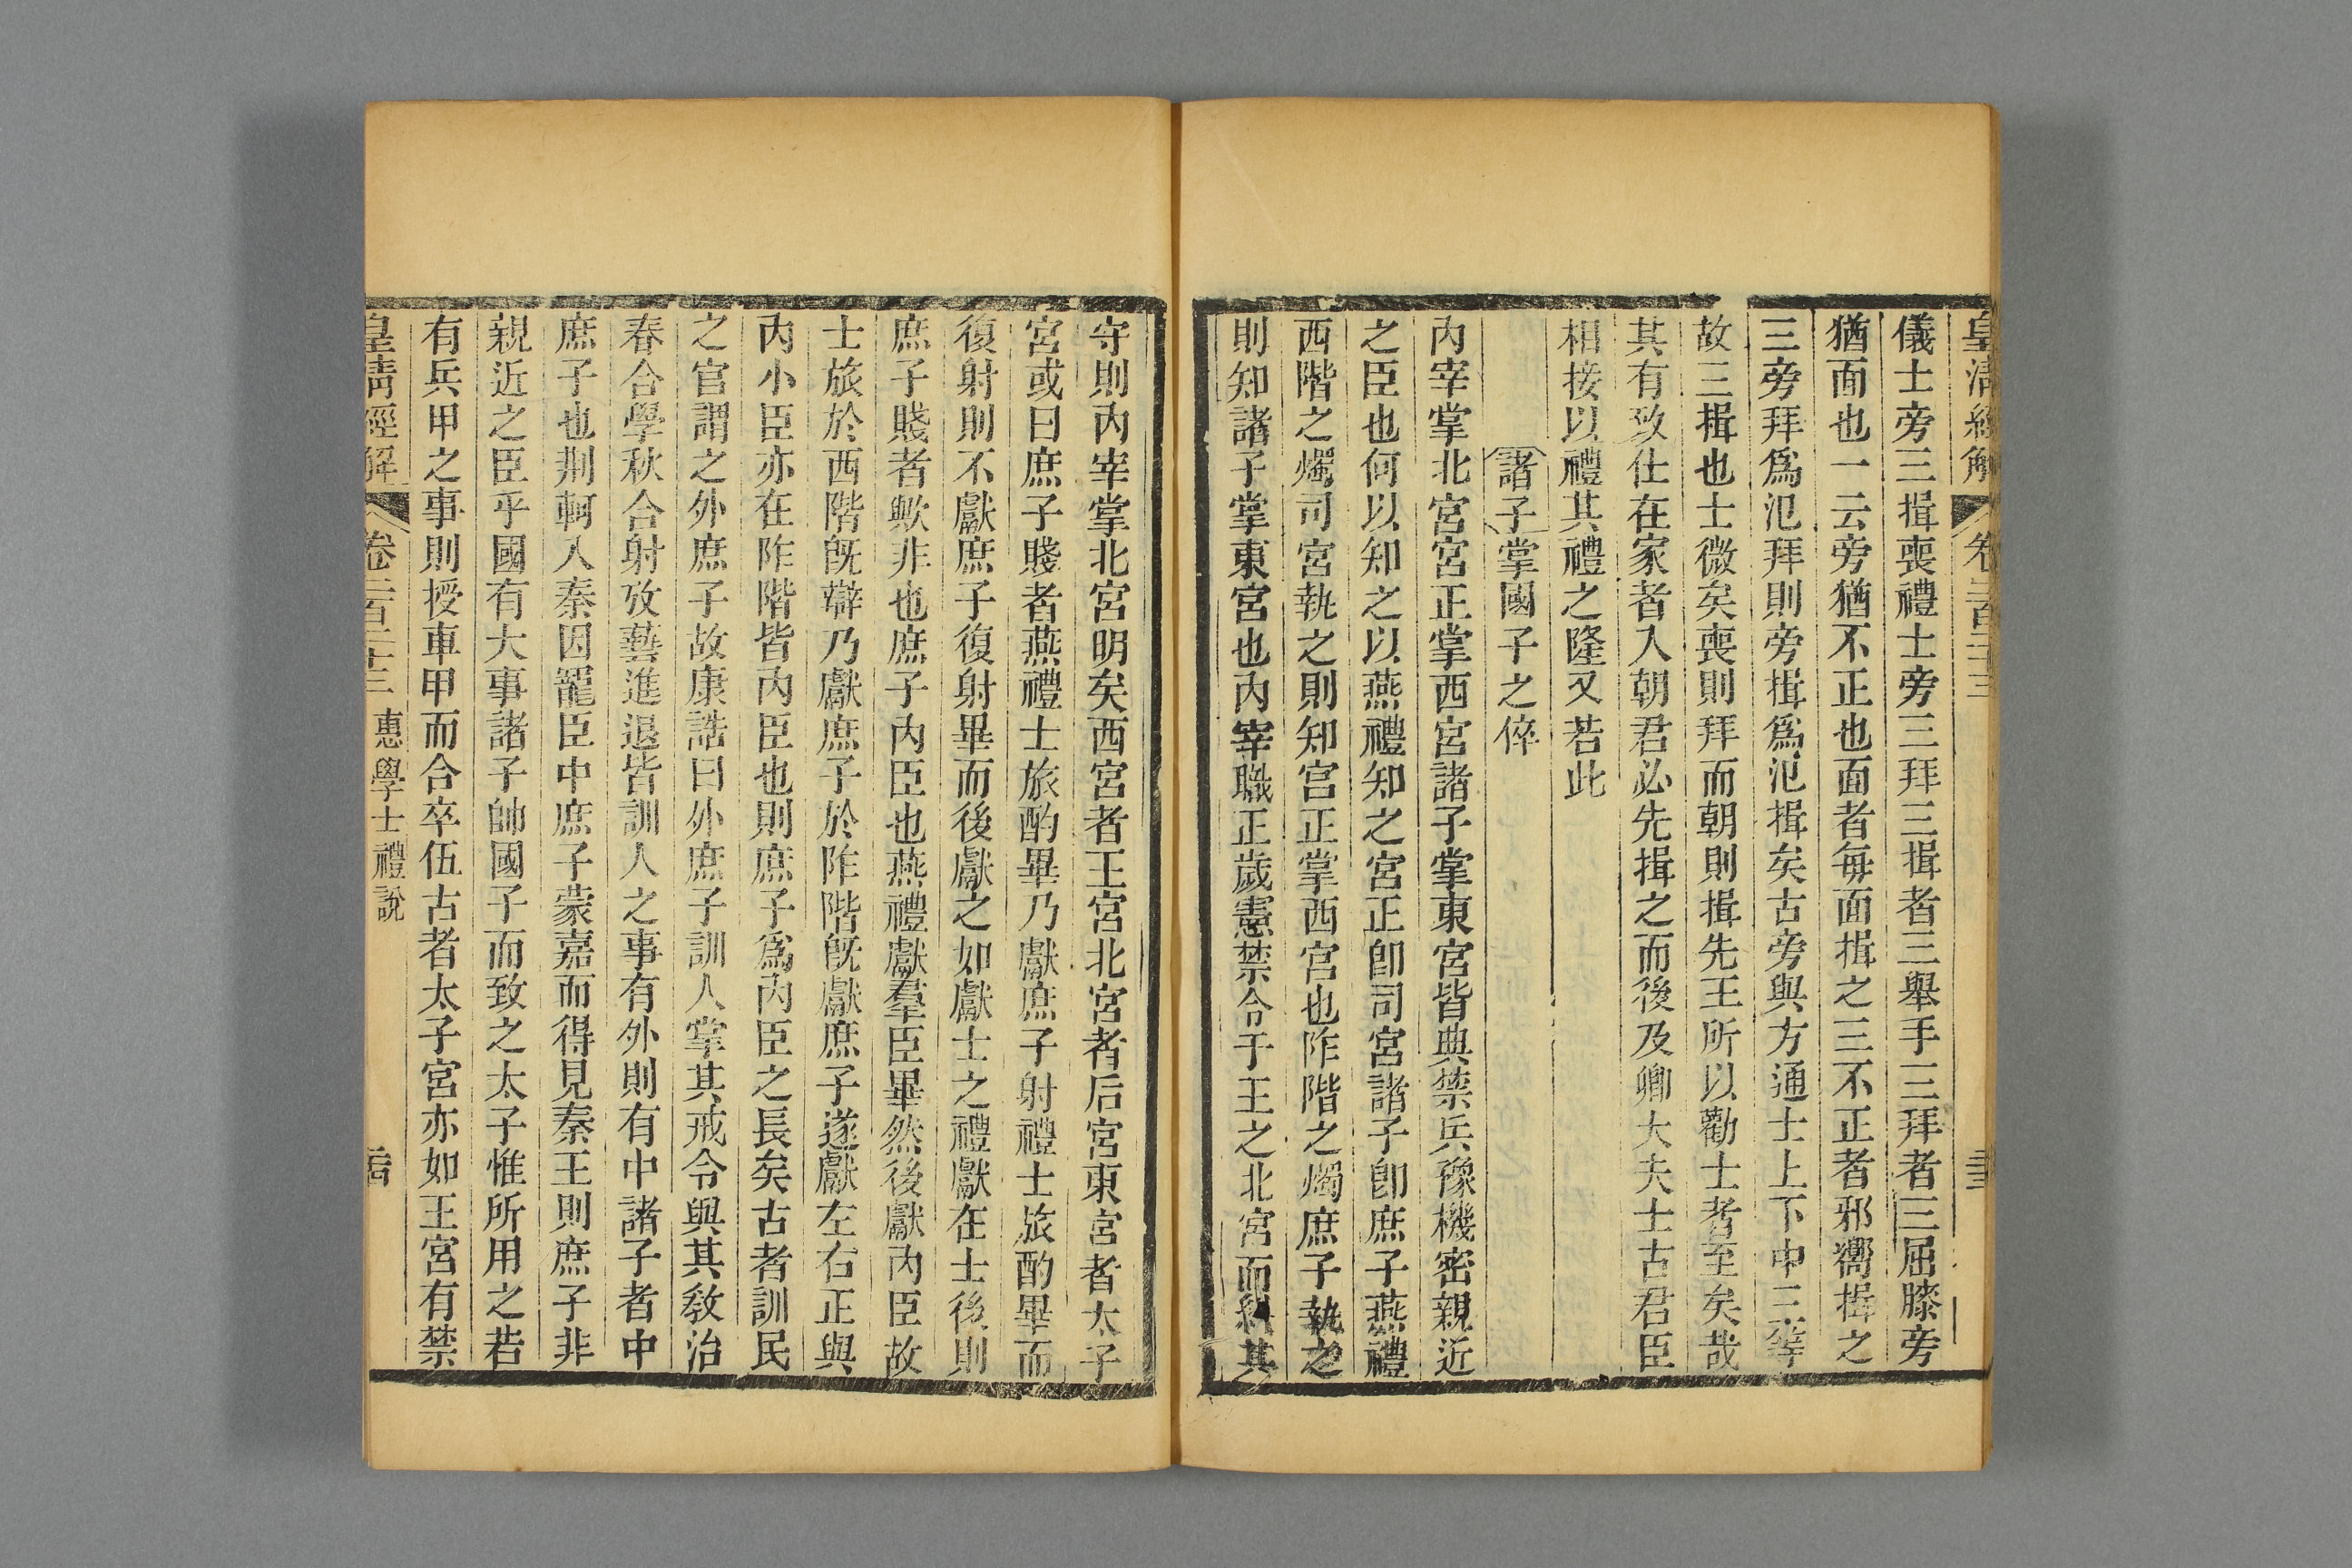 皇清經解 卷二百二十三
儀士旁三揖喪禮士旁三拜三揖者三舉手三拜者三屈膝旁
猶面也一云旁猶不正也面者每面揖之三不正者邪嚮揖之
三旁拜爲氾拜則旁揖爲氾揖矣古旁與方通士上下中三等
故三揖也士微矣喪則拜而朝則揖先王所以勸士者至矣哉
其有致仕在家者入朝君必先揖之而後及卿大夫士古君臣
相接以禮其禮之隆又若此
諸子掌國子之倅
內宰掌北宮宮正掌西宮諸子掌東宮皆典禁兵豫機密親近
之臣也何以知之以燕禮知之宮正卽司宮諸子卽庶子燕禮
西階之燭司宮執之則知宮正掌西宮也阼階之燭庶子執之
則知諸子掌東宮也內宰職正歲憲禁令于王之北宮而糾其
守則內宰掌北宮明矣西宮者王宮北宮者后宮東宮者太子
宮或曰庶子賤者燕禮士旅酌畢乃獻庶子射禮士旅酌畢而
復射則不獻庶子復射畢而後獻之如獻士之禮獻在士後則
庶子賤者歟非也庶子內臣也燕禮獻羣臣畢然後獻內臣故
士旅於西階旣辯乃獻庶子於阼階旣獻庶子遂獻左右正與
內小臣亦在阼階皆內臣也則庶子爲內臣之長矣古者訓民
之官謂之外庶子故康誥曰外庶子訓人掌其戒令與其敎治
春合學秋合射攷藝進退皆訓人之事有外則有中諸子者中
庶子也荆軻入秦因寵臣中庶子蒙嘉而得見秦王則庶子非
親近之臣乎國有大事諸子帥國子而致之太子惟所用之若
有兵甲之事則授車甲而合卒伍古者太子宮亦如王宮有禁
皇清經解 卷二百二十三 惠學士禮說